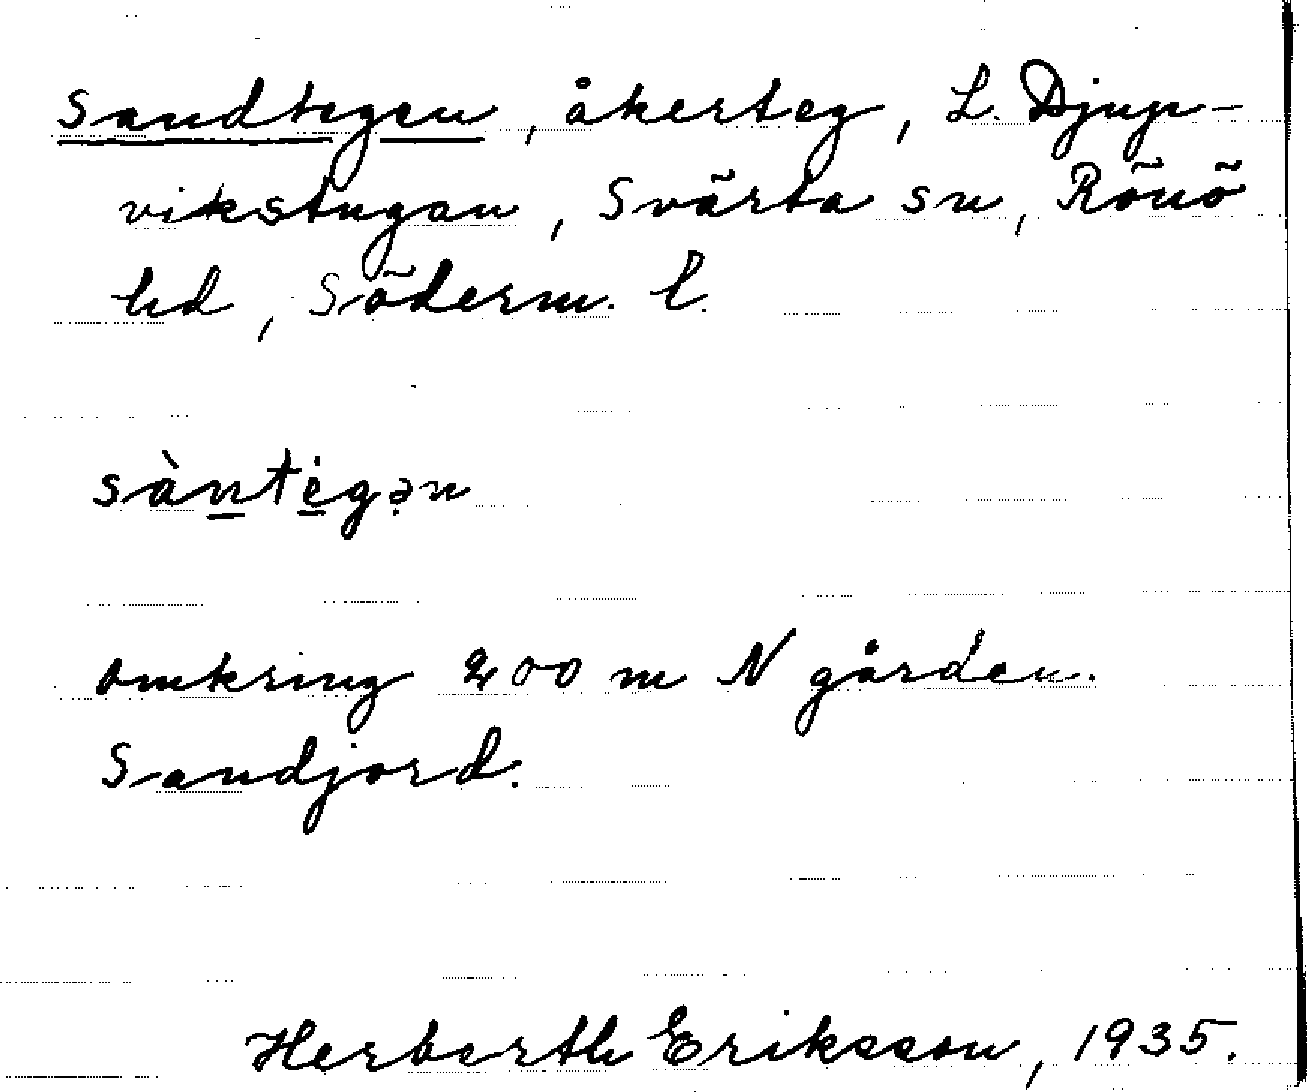 Sandtegen, åkerteg, L. Djup-
vikstugan, Svärta sn, Rönö
hd, Söderm. l.
sàntegən
omkring 200 m N gården.
Sandjord.
Herberth Eriksson, 1935.